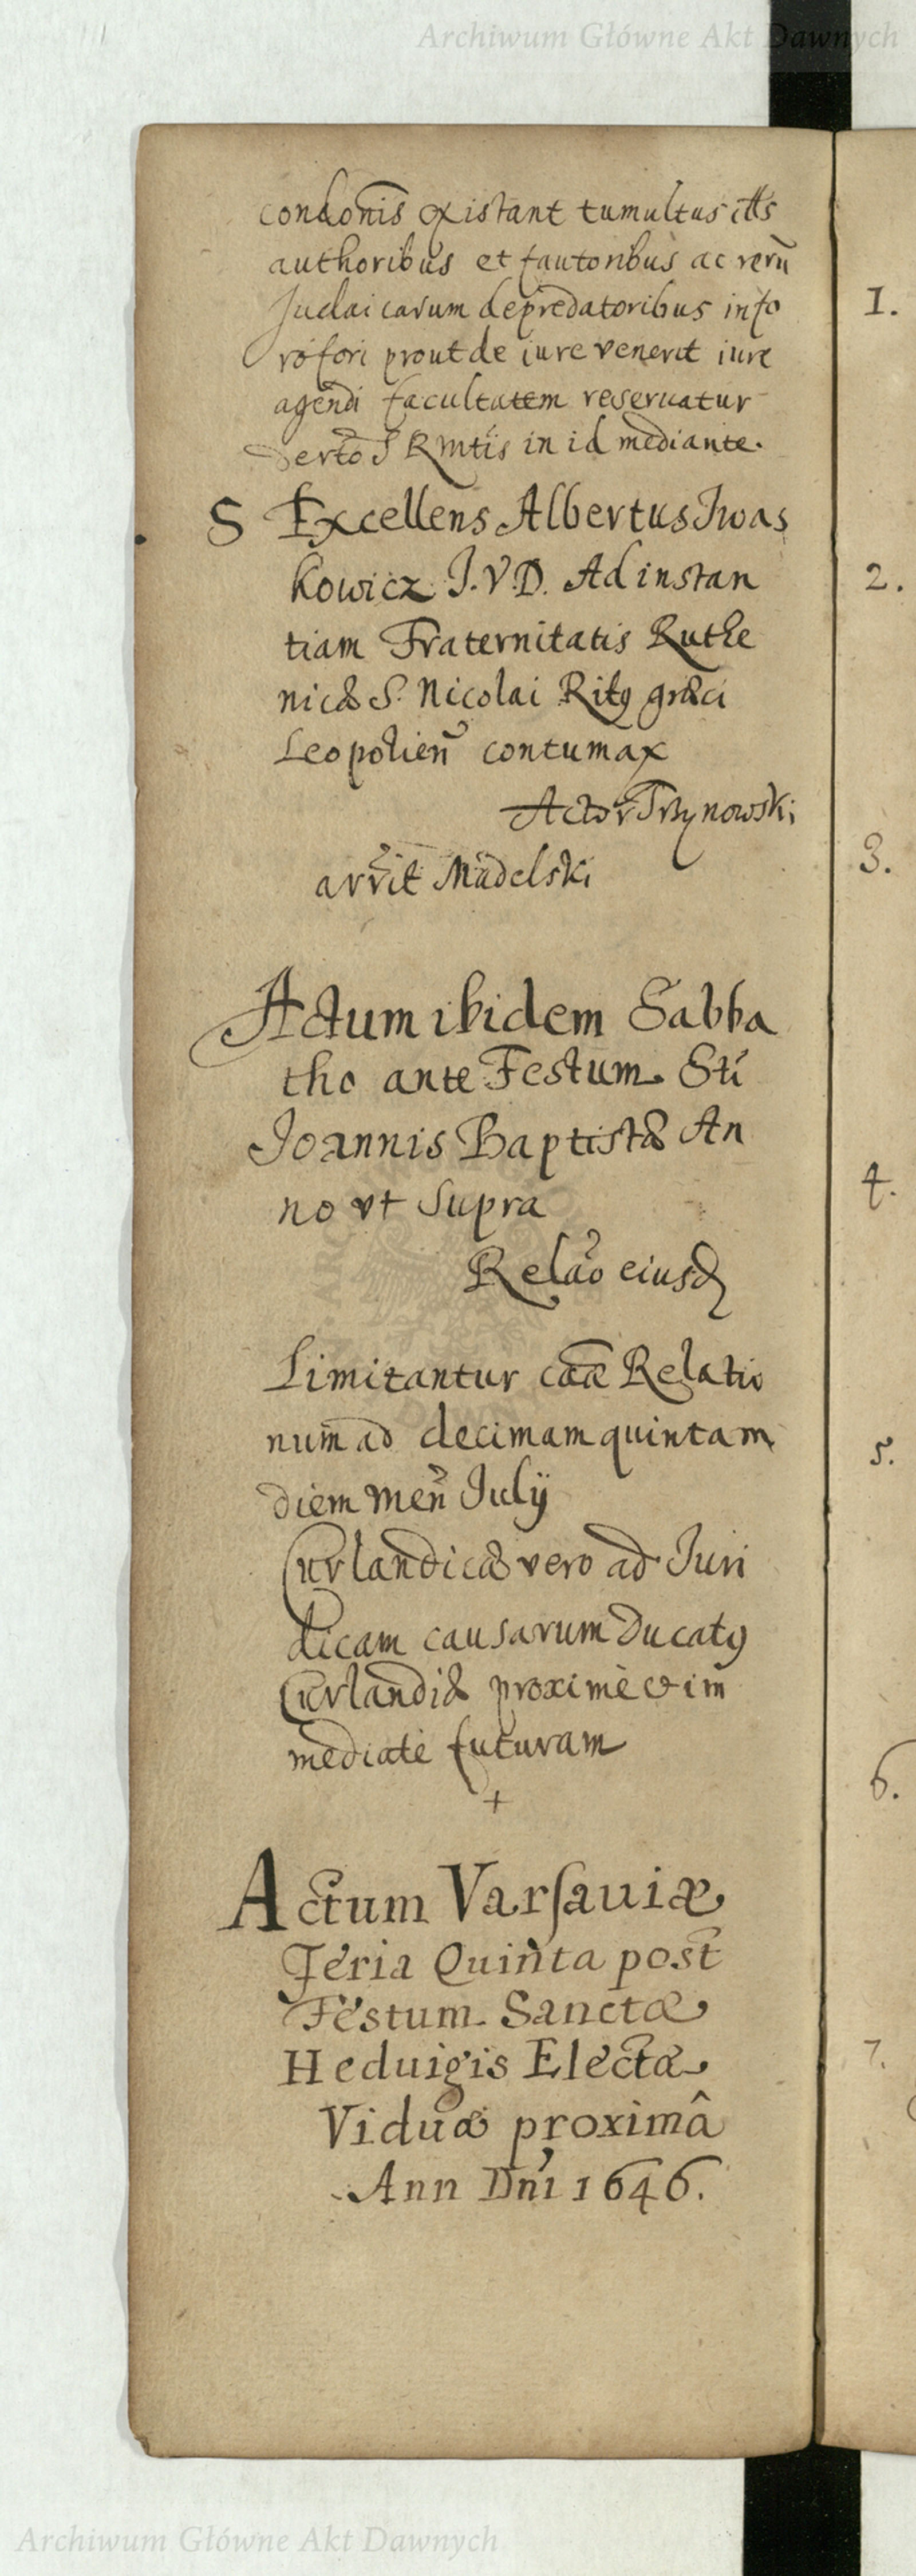 Archiwum Główne Akt Dawnych
condonis existant tumultus
authoribus et fautoribus ac rerũ
Judaicarum depredatoribus in fo
ro fori prout de iure venerit iure
agendi facultatem reseruatur
S R Mtis in id mediante.
S Excellens Albertus Iwas
kowicz J.V.D. Ad instan
tiam Fraternitatis Ruthe
nicæ S. Nicolai Ritus græci
Leopolien̄ contumax
Actor Trzynowski
Madelski
Actum ibidem Sabba
tho ante Festum Sti
Joannis Baptistæ An
no vt Supra
Relãо eiusd
Limitantur cãæ Relatio
num ad decimam quintam
diem Men̄ Julÿ
Curlandicæ vero ad Juri
dicam causarum Ducatus
Curlandiæ proximè & im
mediatè futuram
+
Actum Varſauiæ
Feria Quinta post
Festum Sanctæ
Heduigis Electæ
Viduæ proximâ
Ann Dni 1646.
1.
2.
3.
4.
5.
6.
7.
Archiwum Główne Akt Dawnych